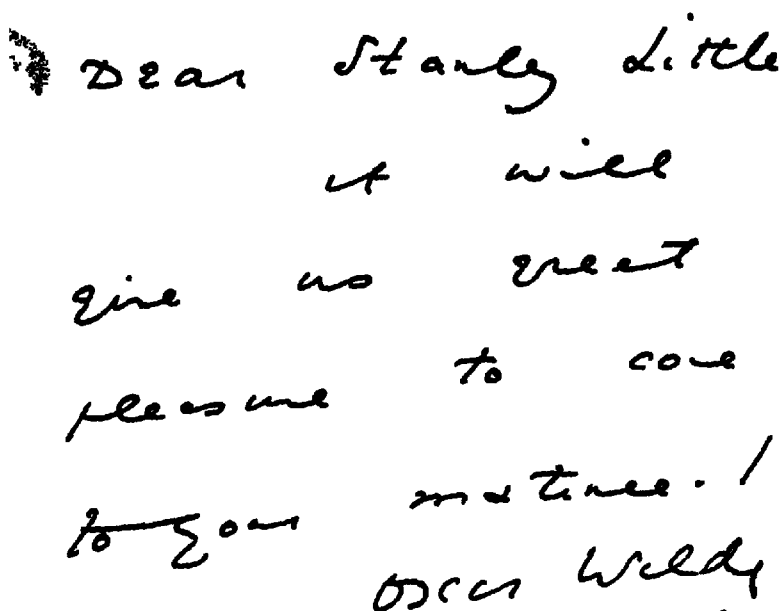 Dear Stanley Little
it will
give us great
pleasure to come
to your matinee. /
Oscar Wilde